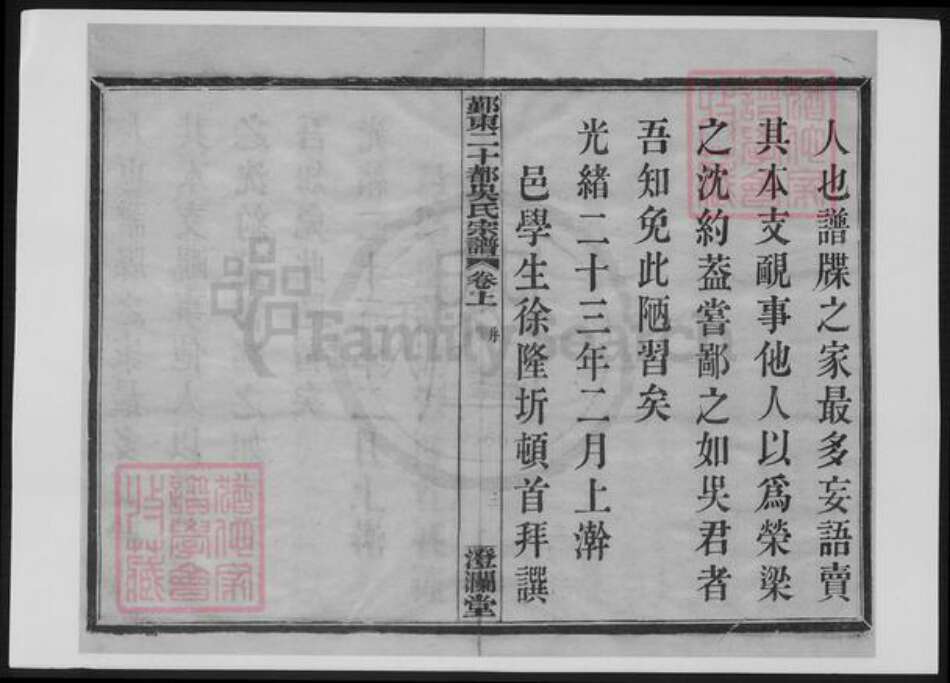 人也譜牒之家最多妄語賣
其本支覥事他人以爲榮梁
之沈約葢嘗鄙之如吳君者
吾知免此陋習矣
光緒二十三年二月上澣
邑學生徐隆圻頓首拜譔
鄞東二十都吳氏宗譜 卷上 序 二 澄瀾堂
FamilySearch